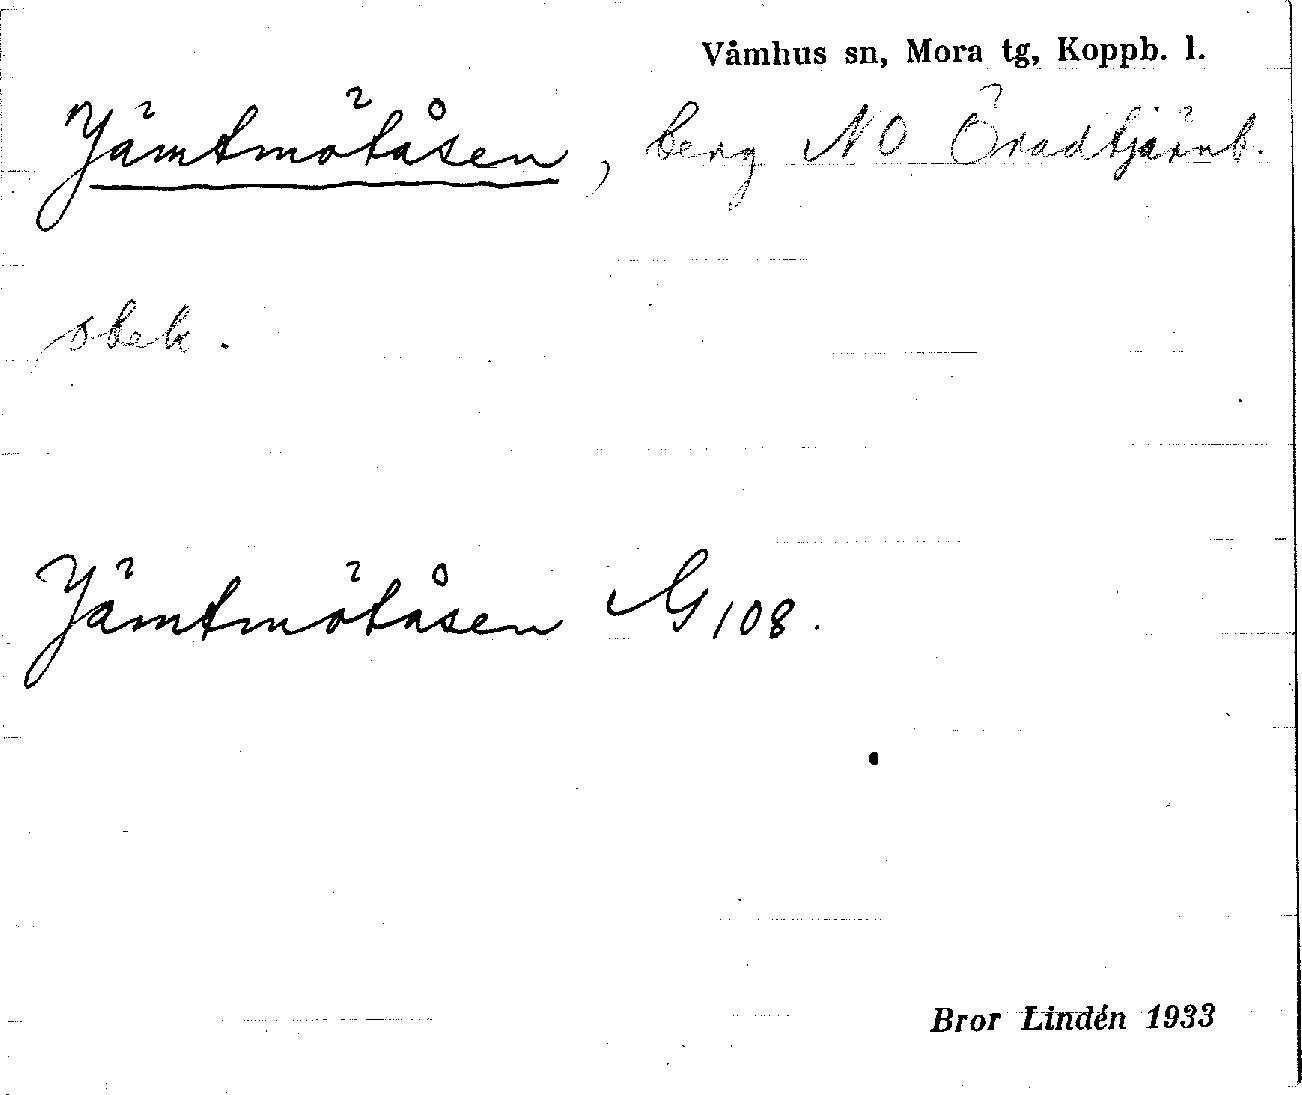 Våmhus sn, Mora tg, Koppb. l.
Jämtmötåsen, berg NO Öradtjärnb.
obek.
Jämtmötåsen G 108.
Bror Lindén 1933